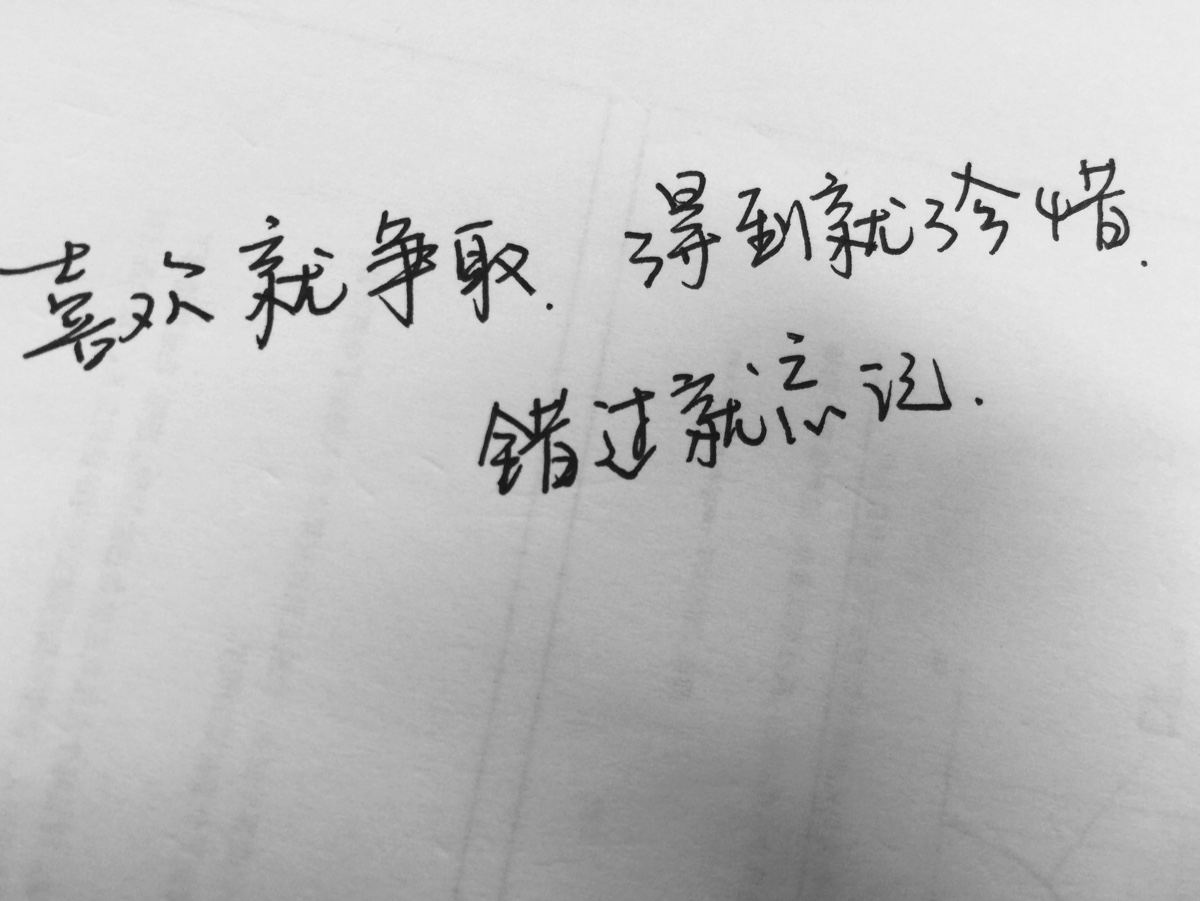 喜欢就争取. 得到就珍惜.
错过就忘记.